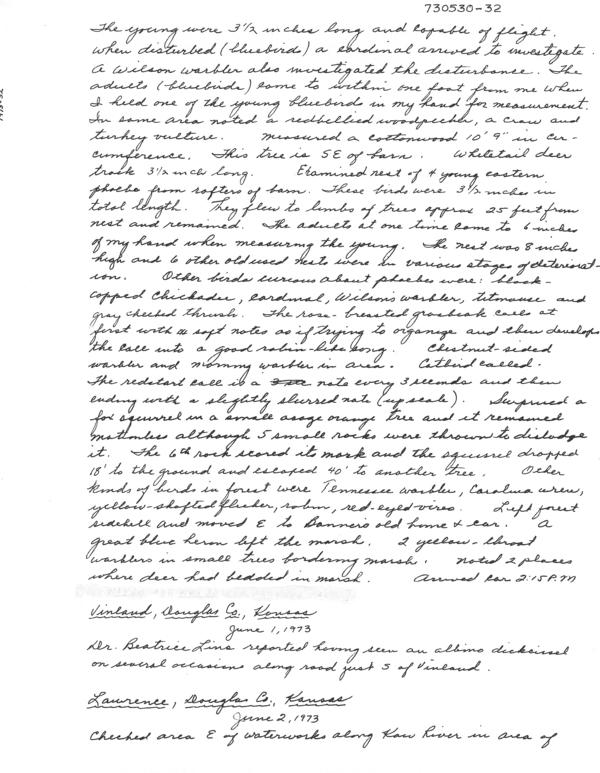 730530-32
The young were 3 1/2 inches long and capable of flight.
When disturbed (bluebirds) a cardinal arrived to investigate.
A Wilson warbler also investigated the disturbance. The
adults (bluebirds) came to within one foot from me when
I held one of the young bluebird in my hand for measurement.
In same area noted a redbellied woodpecker, a crow and
turkey vulture. Measured a cottonwood 10' 9" in cir-
cumference. This tree is SE of barn. Whitetail deer
track 3 1/2 inch long. Examined nest of 4 young eastern
phoebe from rafters of barn. These birds were 3 1/2 inches in
total length. They flew to limbs of trees approx 25 feet from
nest and remained. The adults at one time came to 6 inches
of my hand when measuring the young. The nest was 8 inches
high and 6 other old used nests were in various stages of deteriorat-
ion. Other birds curious about phoebes were: black-
capped chickadee, cardinal, Wilson's warbler, titmouse and
gray cheeked thrush. The rose-breasted grosbeak calls at
first with soft notes as if trying to organize and then develops
the call into a good robin-like song. Chestnut-sided
warbler and mourning warbler in area. Catbird called.
The redstart call is a note every 3 seconds and then
ending with a slightly slurred note (up scale). Surprised a
fox squirrel in a small osage orange tree and it remained
motionless although 5 small rocks were thrown to dislodge
it. The 6th rock scored its mark and the squirrel dropped
18' to the ground and escaped 40' to another tree. Other
kinds of birds in forest were Tennessee warbler, Carolina wren,
yellow-shafted flicker, robin, red-eyed vireo. Left forest
sidehill and moved E to Banners old home & car. A
great blue heron left the marsh. 2 yellow-throat
warblers in small trees bordering marsh. Noted 2 places
where deer had bedded in marsh. Arrived car 2:15 P.M
Vinland, Douglas Co., Kansas
June 1, 1973
Dr. Beatrice reported having seen an albino dickcissel
on several occasions along road just S of Vinland.
Lawrence, Douglas Co., Kansas
June 2, 1973
Checked area E of waterworks along Kaw River in area of